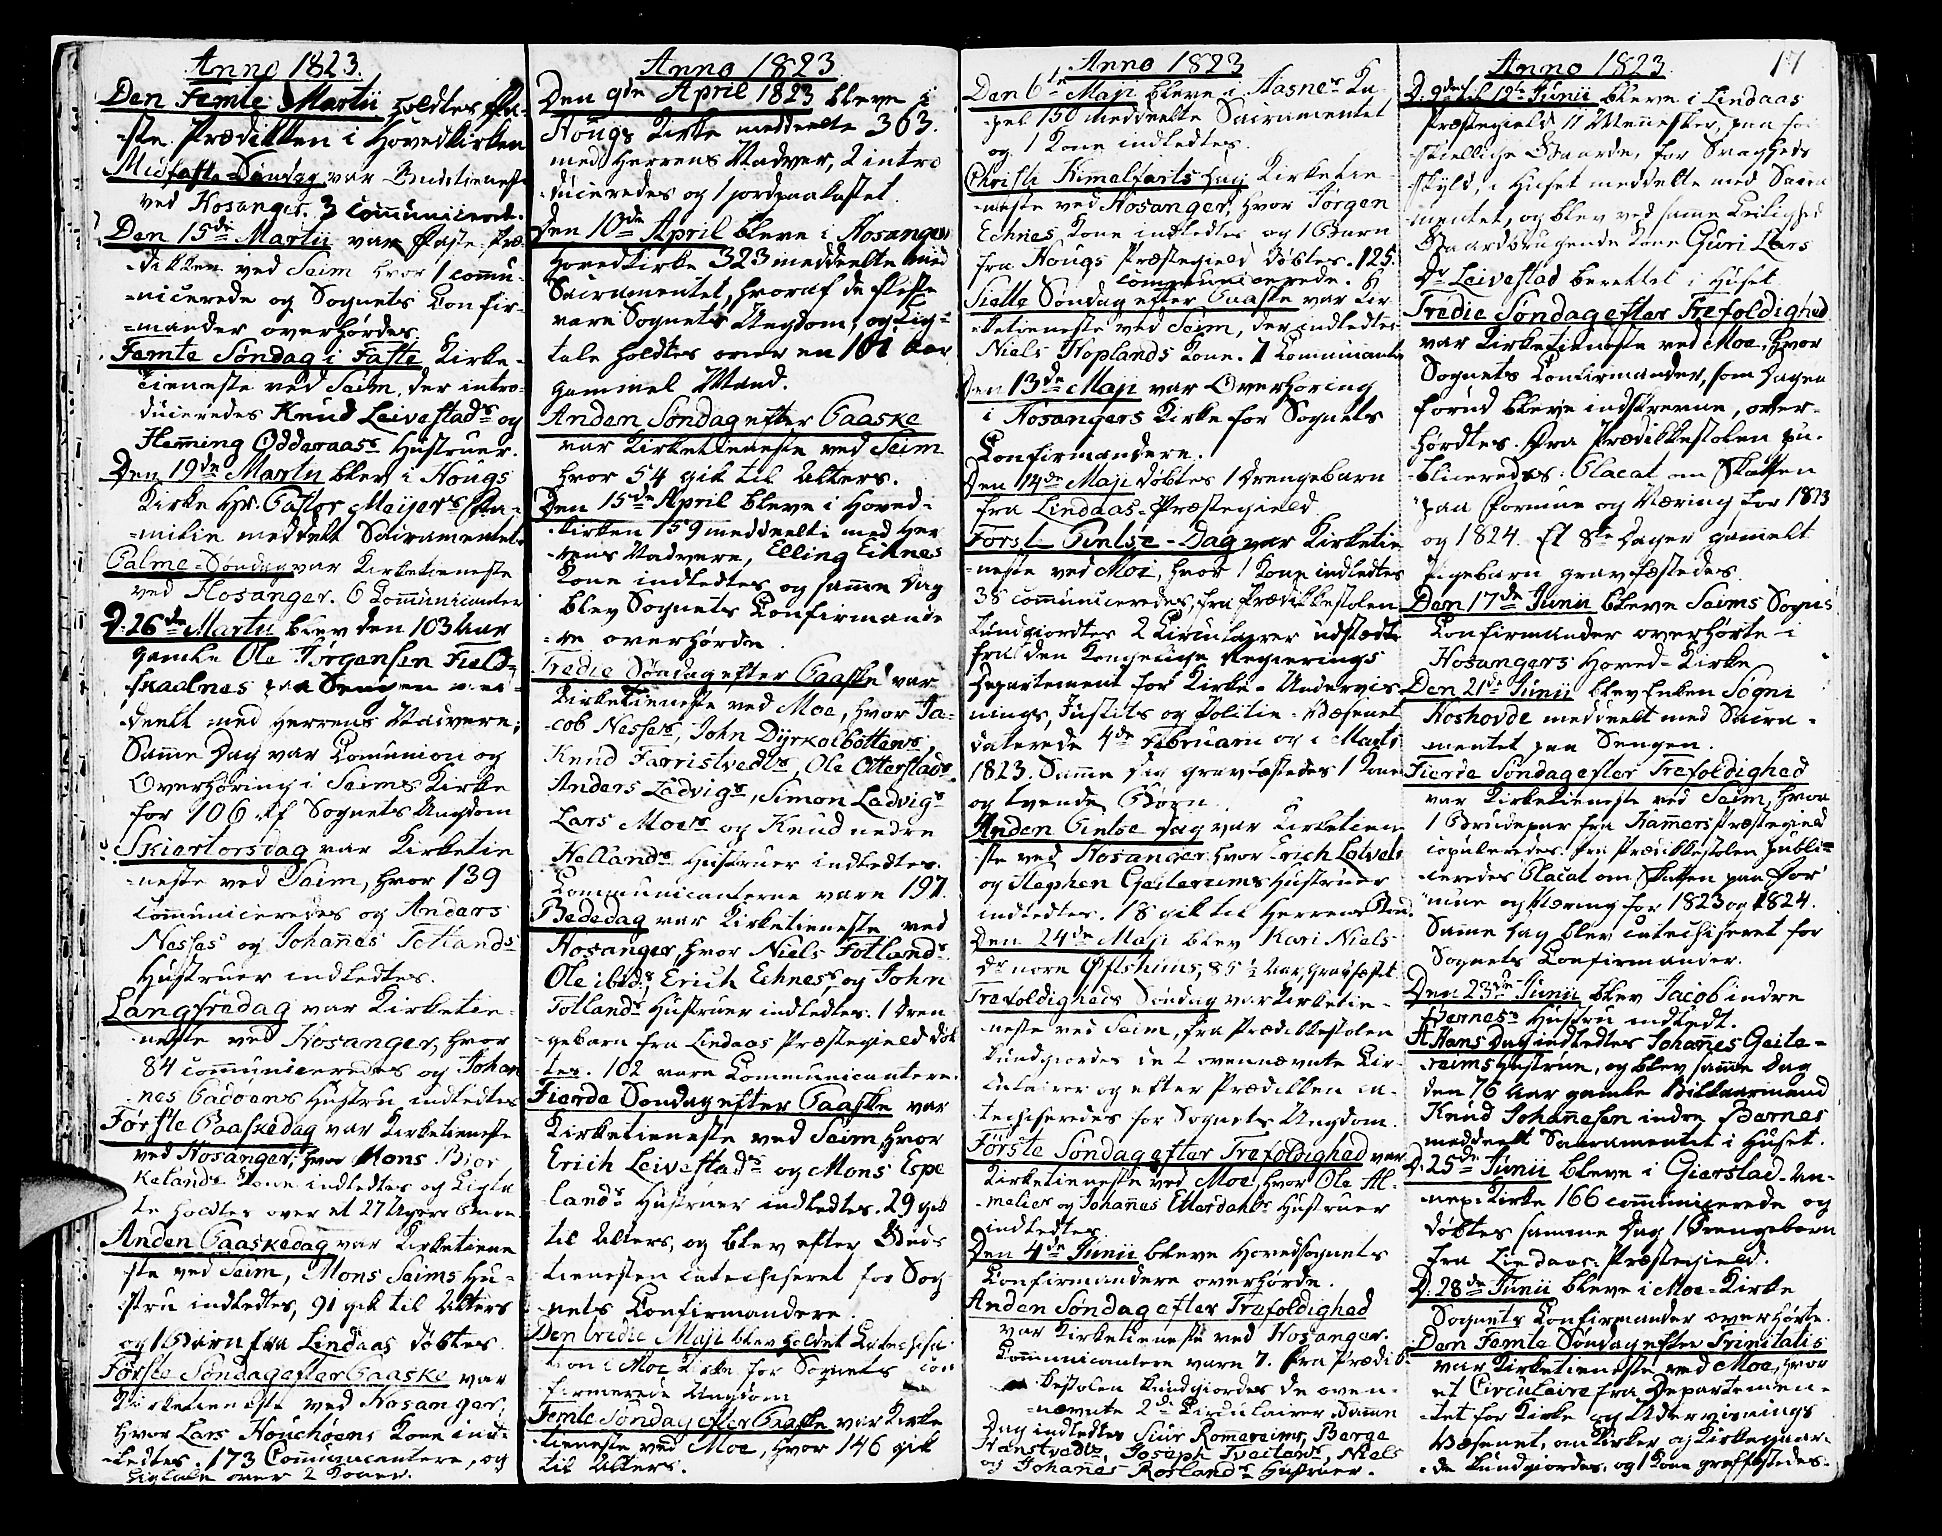 Anno 1823.
Den Femte Martii holdtes Fa-
ste Prædikken i Hovedkirken
Midfaste-Søndag var Gudstieneste
ved Hosanger. 3 communicerede.
Den 15de Martii var Faste-Præ-
dikken ved Seim hvor 1 commu-
nicerede og Sognets Confir-
mander overhørdes
Femte Søndag i Faste Kirke-
Tieneste ved Seim, der intro-
duceredes Knud Leivestads og
Flemming Odderaass Hustruer.
Den 19de Martii blev i Hougs
Kirke Hr. Pastor Meijers Fa-
milie meddelt Sacramentet
Palme-Søndag var Kirketieneste
ved Hosanger. 6 Communicanter
D. 26de Martii blev den 103 Aar
gamle Ole Jørgensen Field-
skaalnes paa Sengen
deelt med Herrens Nadvere;
Samme Dag var Comunion og
Overhøring i Seims Kirke
for 106 af Sognets Ungdom
Skiertorsdag var Kirketie
neste ved Seim, hvor 139
Communiceredes og Anders
Nesses og Johannes Totlands
Hustruer indledtes.
Langfredag var Kirketie-
neste ved Hosanger, hvor
84 communiceredes og Johan
nes Padøens Hustru indledtes
Første Paaskedag var Kirketieneste
ved Hosanger, hvor Mons Bior
kelands Kone indledtes og Ligta
le holdtes over et 27 Ugers Barn
Anden Paaskedag var Kirketiene
ste ved Seim, Mons Seims Hu-
stru indledtes, 91 gik til Alters
og 1 Barn fra Lindaas døbtes
Første Søndag efter Paaske var
Kirketieneste ved Hosanger,
hvor Lars Houchøens Kone ind-
ledtes. 173 Communicantere, og
Ligtale over 2 Koner.
Anno 1823
Den 9de April 1823 bleve i
Hougs Kirke meddeelte 363.
med Herrens Nadver, 2 intro
duceredes og 1 jordpaakastet.
Den 10de April bleve i Hosanger
Hovedkirke 323 meddeelte med
Sacramentet, hvoraf de fleste
vare Sognets Ungdom, og Lig-
tale holdtes over en 101 Aar
gammel Mand.
Anden Søndag efter Paaske
var Kirketieneste ved Seim
hvor 54 gik til Alters.
Den 15de April bleve i Hoved-
kirken 159 meddeelte med Her
rens Nadvere, Elling Eknes
Kone indledtes og samme Dag
blev Sognets Confirmande
re overhørde
Tredie Søndag efter Paaske var
Kirketieneste ved Moe, hvor Ja-
cob Nesses, John Dyrkolbottens,
Knud Farristvedts, Ole Otterstads,
Anders Ladvigs, Simon Ladvigs
Lars Moes og Knud nedre
Hellands Hustruer indledtes.
Communicanterne vare 197.
Bededag var Kirketieneste ved
Hosanger, hvor Niels Fotlands
Ole ibids; Erich Echness, og John
Totlands Hustruer indledtes. 1 Dren
gebarn fra Lindaas Præstegield døb
tes. 102 vare Communicantere.
Fierde Søndag efter Paaske var
Kirketieneste ved Seim, hvor
Erich Leivestads og Mons Espe
lands Hustruer indledtes. 29 gik
til Alters, og blev efter Guds-
tienesten catechiseret for Sog
nets Confirmandere
Den tredie Maji blev holdet Catechisa-
tion i Moe Kirke for Sognets Con
firmerede Ungdom
Femte Søndag efter Paaske var Kirke
tieneste ved Moe, hvor 146 gik
til Alters.
Anno 1823
Den 6te Maji bleve i Aasnes Ka-
pel 150 meddeelte Sacramentet
og 1 Kone indledtes.
Christi Himelfarts Dag Kirketie-
neste ved Hosanger, hvor Jørgen
Echnes Kone indledtes og 1 Barn
fra Hougs Præstegield døbtes. 125
communicerede.
Siette Søndag efter Paaske var Kir
ketieneste ved Seim, der indledtes
Niels Hoplands Kone. 7 Communicanter
Den 13de Maji var Overhøring
i Hosangers Kirke for Sognets
Confirmandere.
Den 14de Maji døbtes 1 Drengebarn
fra Lindaas-Præstegield.
Første Pintse-Dag var Kirketie
neste ved Moe, hvor 1 Kone indledtes
38 communiceredes, fra Prædikkestolen
kundgiordtes 2 Circulairer udstædte
fra den Kongelige Regierings
Departement for Kirke-Undervis
nings, Justits og Politie-Væsenet
daterede 4de Februarii og i Marts
1823. Samme Dag gravfæstedes 1 Kone
og tvende Børn
Anden Pintse Dag var Kirketiene
ste ved Hosanger hvor Erich Lotvets
og Stephen Geiterums Hustruer
indledtes. 18 gik til Herrens Bord.
Den 24de Maji blev Kari Niels
dr nore Øftshuns, 85 1/2 Aar, gravfæstet
Trefoldigheds Søndag var Kirketie-
neste ved Seim, fra Prædikkestolen
kundgiordes de 2 ovennævnte Cir-
culairer og efter Prædikken ca-
techiseredes for Sognets Ungdom.
Første Søndag efter Trefoldighed var
Kirketieneste ved Moe, hvor Ole Al-
melies og Johannes Etterdahls Hustruer
indledtes
Den 4de Junii bleve Hovedsognets
Confirmandere overhørde.
Anden Søndag efter Trefoldighed
var Kirketieneste ved Hosanger.
Communicantere vare 7. Fra Prædik-
kestolen kundgiordes de oven-
nævnte 2de Circulairer. Samme
Dag indledtes Siur Romereims, Berge
Hanstvedts, Joseph Tveitens, Niels
og Johannes Roslands Hustruer.
Anno 1823. 17
D. 9de til 12te Junii bleve i Lindaas
Præstegield 11 Mennesker, paa for
skiellige Gaarde, for Svagheds
skyld, i Huset meddelte med Sacra
mentet, og blev ved samme Leilighed
Gaardbrugende Kone Guri Lars
Dr Leivestad berettet i Huset
Tredie Søndag efter Trefoldighed
var Kirketieneste ved Moe, hvor
Sognets Confirmander, som Dagen
forud bleve indskrevne, over-
hørdtes. Fra Prædikkestolen pu-
bliceredes: Placat om Skatten
paa Formue og Næring for 1823
og 1824. Et 8te Dager gamelt
Pigebarn gravfæstedes.
Den 17de Junii bleve Seims Sogns
Confirmander overhørte i
Hosangers Hoved-Kirke
Den 21de Junii blev Enken Søgni
Hoshovde meddeelt med Sacra-
mentet paa Sengen.
Fierde Søndag efter Trefoldighed
var Kirketieneste ved Seim, hvor
1 Brudepar fra Hammers Præstegield
copuleredes. Fra Prædikkestolen publi-
ceredes Placat om Skatten paa For
mue og Næring for 1823 og 1824.
Samme Dag blev catechiseret for
Sognets Confirmander.
Den 23de Junii blev Jacob indre
Bernes Hustru indledt.
St Hans Dag indledtes Johannes Geite-
reims Hustrue, og blev samme Dag
den 76 Aar gamle Vilkaarmand
Knud Johannesen indre Bernes
meddeelt Sacramentet i Huset.
D. 25de Junii bleve i Gierstad An-
nex-Kirke 166 communicerede og
døbtes samme Dag 1 Drengebarn
fra Lindaas Præstegield.
D. 28de Junii bleve i Moe-Kirke
Sognets Confirmander overhørte.
Den Femte Søndag efter Trinitatis
var Kirketieneste ved Moe, hvor
et Circulaire fra Departemen-
tet for Kirke og Undervisnings
Væsenet, om Kirker og Kirkegaar-
de kundgiordes, og 1 Kone graffæstedes.